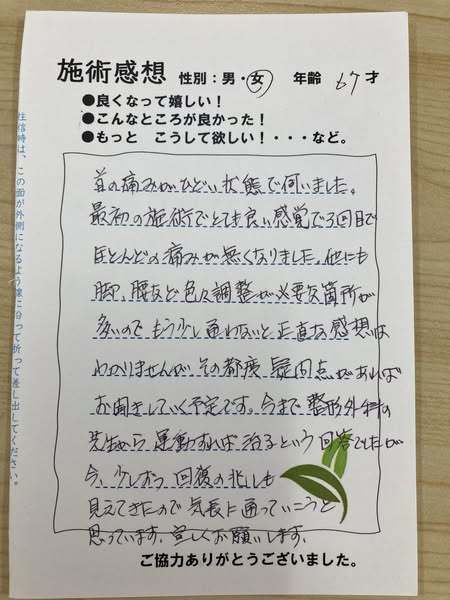 施術感想 性別：男・女 年齢 67才
●良くなって嬉しい！
●こんなところが良かった！
●もっと こうして欲しい！・・・など。
首の痛みがひどい状態で伺いました。
最初の施術でとても良い感覚で3回目で
ほとんどの痛みが無くなりました。他にも
脚、腰など色々調整が必要な箇所が
多いのでもう少し通わないと正直な感想は
わかりませんが その都度 疑問点があれば
お聞きしていく予定です。今まで整形外科の
先生から運動すれば治るという回答でしたが
今、少しずつ回復の兆しも
見えてきたので気長に通っていこうと
思っています。宜しくお願いします。
ご協力ありがとうございました。
往信時は、この面が外側になるよう線に沿って折って差し出してください。